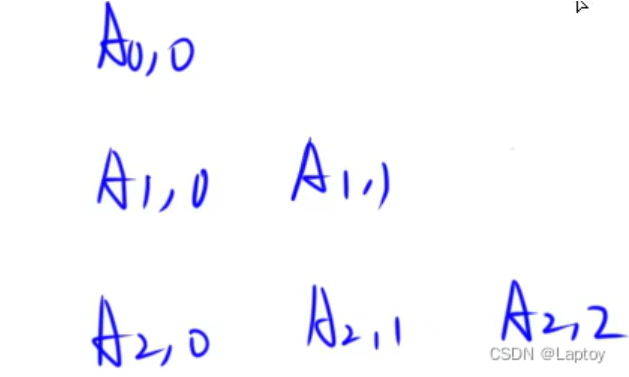 A0,0
A1,0 A1,1
A2,0 A2,1 A2,2
CSDN @Laptoy